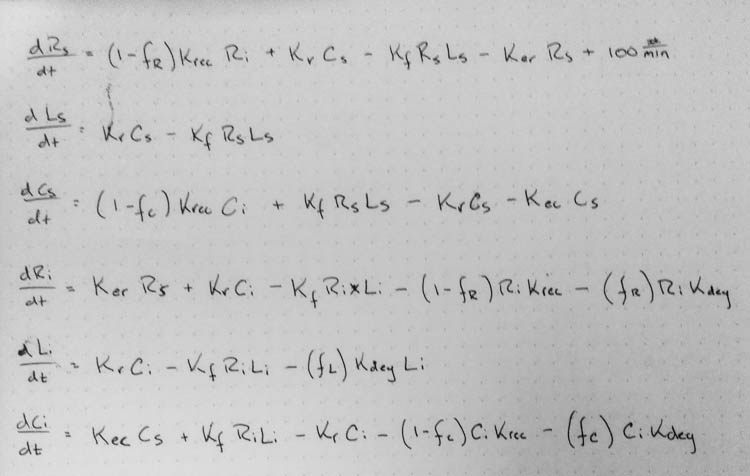 dRs/dt = (1-fR)Krec Ri + Kr Cs - Kf Rs Ls - Ker Rs + 100 /min
dLs/dt = Kr Cs - Kf Rs Ls
dCs/dt = (1-fc) Krec Ci + Kf Rs Ls - Kr Cs - Kec Cs
dRi/dt = Ker Rs + Kr Ci - Kf Ri*Li - (1-fR) Ri Krec - (fR) Ri Kdeg
dLi/dt = Kr Ci - Kf Ri Li - (fL) Kdeg Li
dCi/dt = Kec Cs + Kf Ri Li - Kr Ci - (1-fc) Ci Krec - (fc) Ci Kdeg